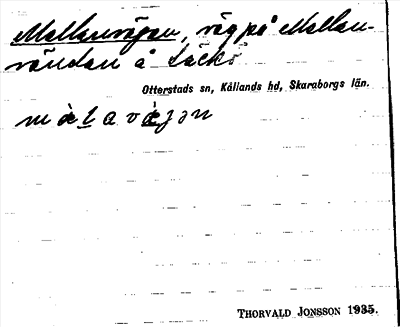 Mellanvägen, väg på Mellan-
rändan å Läckö
Otterstads sn, Kållands hd, Skaraborgs län.
THORVALD JONSSON 1935.